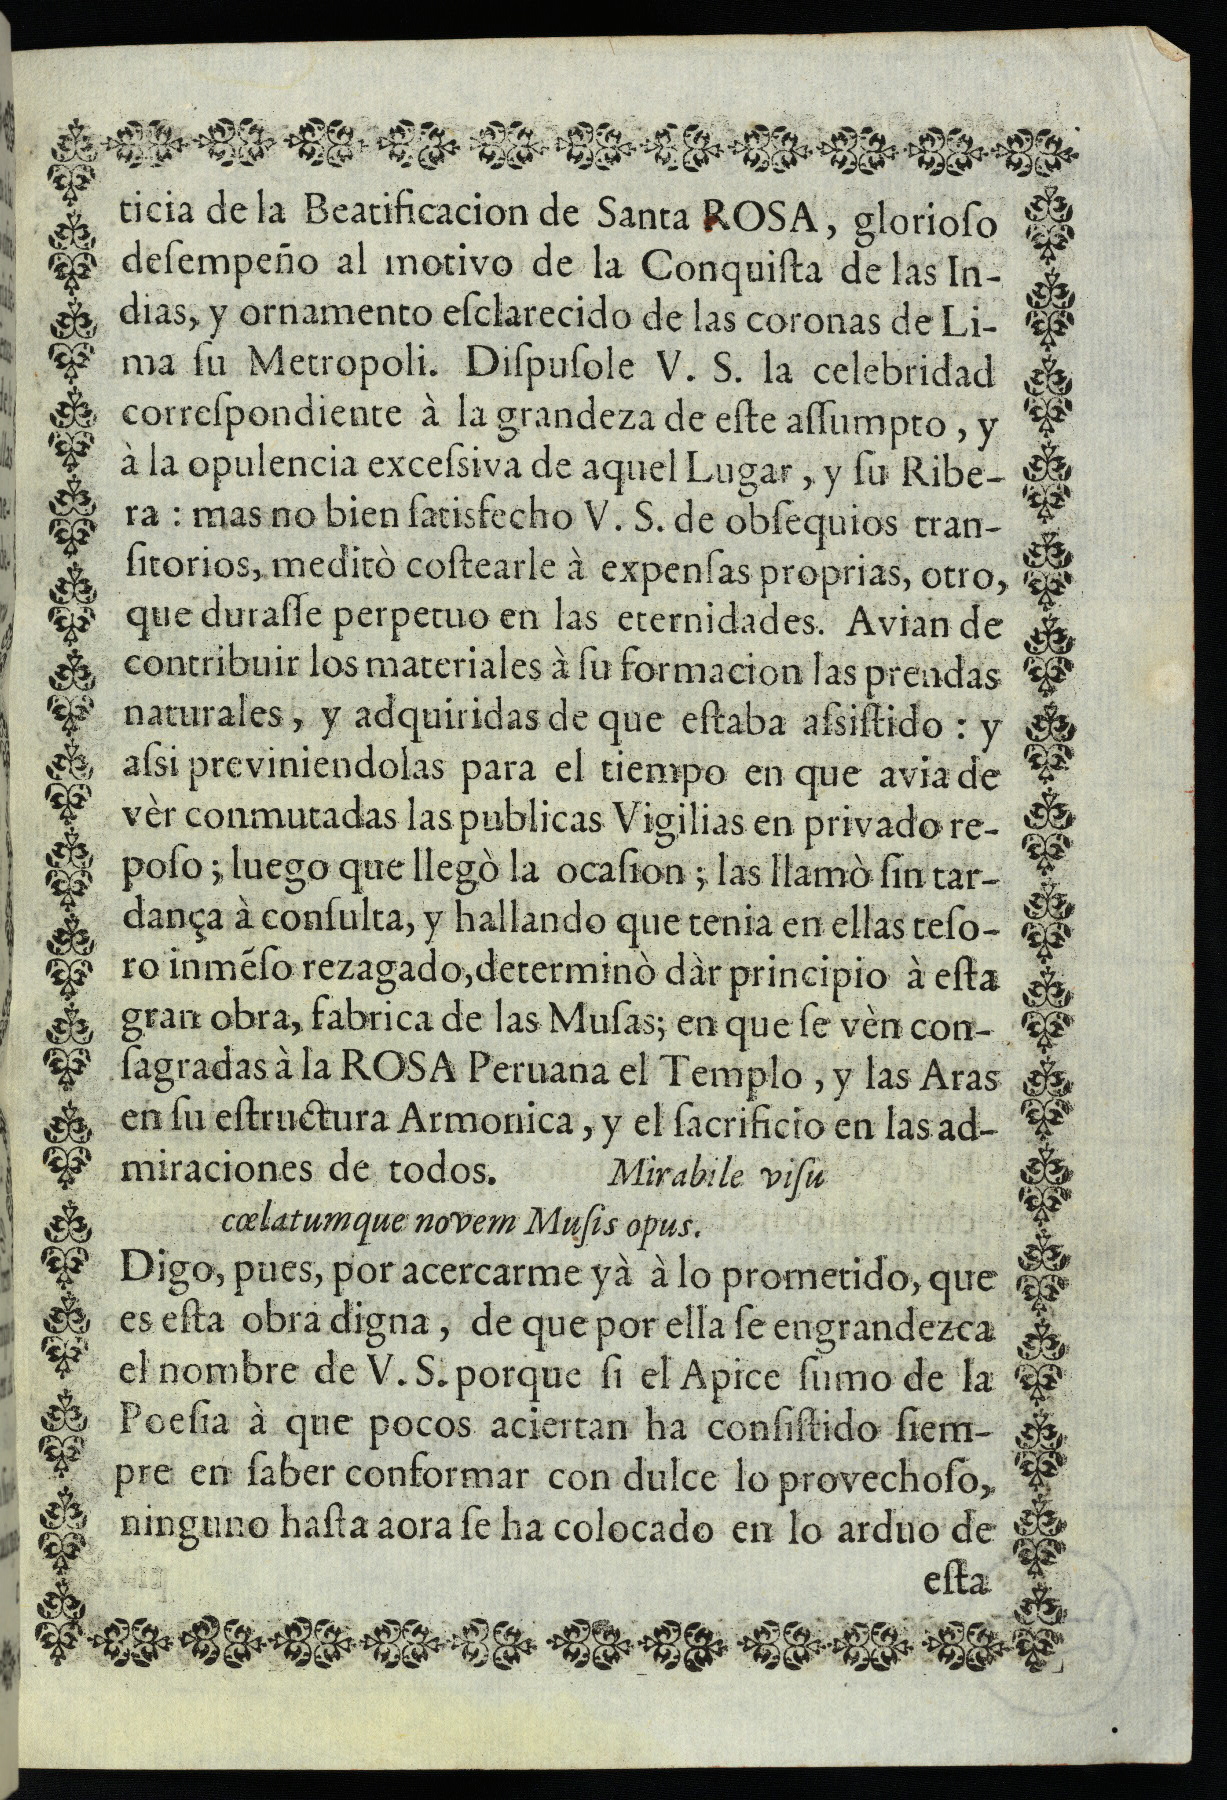 ticia de la Beatificacion de Santa ROSA, glorioſo
deſempeño al motivo de la Conquiſta de las In-
dias, y ornamento eſclarecido de las coronas de Li-
ma ſu Metropoli. Diſpuſole V. S. la celebridad
correſpondiente à la grandeza de eſte aſſumpto, y
à la opulencia exceſsiva de aquel Lugar, y ſu Ribe-
ra : mas no bien ſatisfecho V. S. de obſequios tran-
ſitorios, meditò coſtearle à expenſas proprias, otro,
que duraſſe perpetuo en las eternidades. Avian de
contribuir los materiales à ſu formacion las prendas
naturales, y adquiridas de que eſtaba aſsiſtido : y
aſsi previniendolas para el tiempo en que avia de
vèr conmutadas las publicas Vigilias en privado re-
poſo ; luego que llegò la ocaſion ; las llamò ſin tar-
dança à conſulta, y hallando que tenia en ellas teſo-
ro inmẽſo rezagado, determinò dàr principio à eſta
gran obra, fabrica de las Muſas; en que ſe vèn con-
ſagradas à la ROSA Peruana el Templo, y las Aras
en ſu eſtructura Armonica, y el ſacrificio en las ad-
miraciones de todos. Mirabile viſu
cœlatumque novem Muſis opus.
Digo, pues, por acercarme yà à lo prometido, que
es eſta obra digna, de que por ella ſe engrandezca
el nombre de V. S. porque ſi el Apice ſumo de la
Poeſia à que pocos aciertan ha conſiſtido ſiem-
pre en ſaber conformar con dulce lo provechoſo,
ninguno haſta aora ſe ha colocado en lo arduo de
eſta